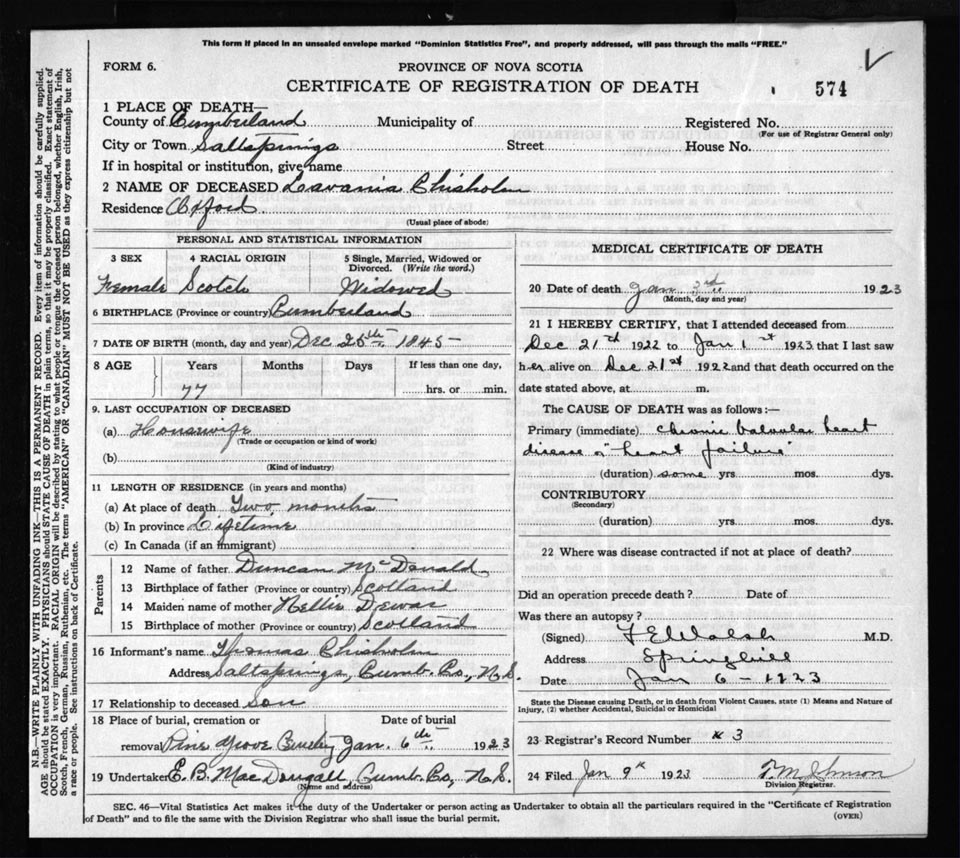 This form if placed in an unsealed envelope marked "Dominion Statistics Free", and properly addressed, will pass through the mails "FREE."
FORM 6.
PROVINCE OF NOVA SCOTIA
CERTIFICATE OF REGISTRATION OF DEATH
574
1 PLACE OF DEATH—
County of Cumberland Municipality of Registered No.
(For use of Registrar General only)
City or Town Saltsprings Street House No.
If in hospital or institution, give name
2 NAME OF DECEASED Lavania Chisholm
Residence Oxford
(Usual place of abode)
PERSONAL AND STATISTICAL INFORMATION
3 SEX 4 RACIAL ORIGIN 5 Single, Married, Widowed or Divorced. (Write the word.)
Female Scotch Widowed
6 BIRTHPLACE (Province or country) Cumberland
7 DATE OF BIRTH (month, day and year) Dec 25th 1845
8 AGE Years Months Days If less than one day,
77 hrs. or min.
9. LAST OCCUPATION OF DECEASED
(a) Housewife
(Trade or occupation or kind of work)
(b)
(Kind of industry)
11 LENGTH OF RESIDENCE (in years and months)
(a) At place of death Two months
(b) In province Lifetime
(c) In Canada (if an immigrant)
Parents
12 Name of father Duncan McDonald
13 Birthplace of father (Province or country) Scotland
14 Maiden name of mother Nellie Dewar
15 Birthplace of mother (Province or country) Scotland
16 Informant's name Thomas Chisholm
Address Saltsprings, Cumb. Co., N.S.
17 Relationship to deceased Son
18 Place of burial, cremation or Date of burial
removal Pine Grove Jan. 6th 1923
19 Undertaker E. B. MacDougall, Cumb. Co, N.S.
(Name and address)
MEDICAL CERTIFICATE OF DEATH
20 Date of death Jan 3rd 1923
(Month, day and year)
21 I HEREBY CERTIFY, that I attended deceased from
Dec 21st 1922 to Jan 1st 1923 that I last saw
her alive on Dec 21st 1922 and that death occurred on the
date stated above, at m.
The CAUSE OF DEATH was as follows:—
Primary (immediate) chronic valvular heart
disease or "heart failure"
(duration) some yrs. mos. dys.
CONTRIBUTORY
(Secondary)
(duration) yrs. mos. dys.
22 Where was disease contracted if not at place of death?
Did an operation precede death? Date of
Was there an autopsy?
(Signed) F E Walsh M.D.
Address Springhill
Date Jan 6 - 1923
State the Disease causing Death, or in death from Violent Causes, state (1) Means and Nature of
Injury, (2) whether Accidental, Suicidal or Homicidal
23 Registrar's Record Number x 3
24 Filed Jan 9th 1923 T. M. Johnson
Division Registrar.
SEC. 46—Vital Statistics Act makes it the duty of the Undertaker or person acting as Undertaker to obtain all the particulars required in the "Certificate of Registration
of Death" and to file the same with the Division Registrar who shall issue the burial permit.
(OVER)
N.B.—WRITE PLAINLY WITH UNFADING INK—THIS IS A PERMANENT RECORD. Every item of information should be carefully supplied.
AGE should be stated EXACTLY. PHYSICIANS should STATE CAUSE OF DEATH in plain terms, so that it may be properly classified. Exact statement of
OCCUPATION is very important. RACIAL ORIGIN will be described by stating to what people or tongue the deceased person belonged, whether English, Irish,
Scotch, French, German, Russian, Ruthenian, etc. The terms "AMERICAN" or "CANADIAN" MUST NOT BE USED as they express citizenship but not
a race or people. See instructions on back of Certificate.